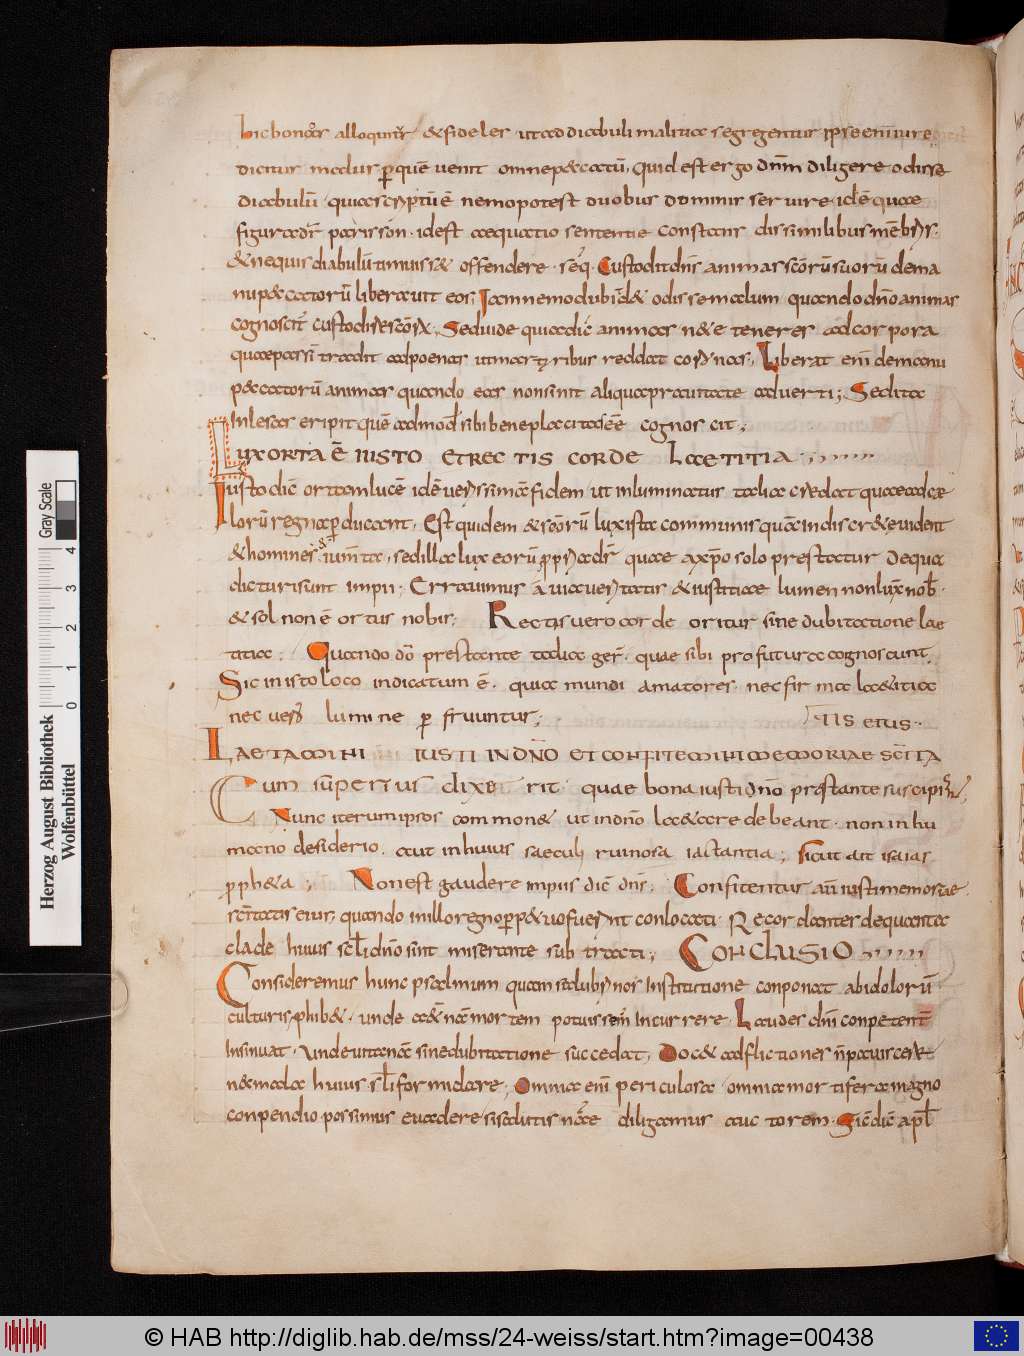 hic bonos alloquitur & fideles ut ad diabuli malitia segregentur ipse enim iure
dicitur malus per quē venit omne peccatū, quid est ergo dnm diligere odisse
diabulū quia scriptū ē nemo potest duobus dominis servire id ē quae
figura dr parison id est aequatio sententie constans dissimilibus mēbris
& ne quis diabulū timuisset offendere seq̄ Custodit dns animas scōrū suorū de ma
nu peccatorū liberavit eos; Iam nemo dubitet odisse malum quando dn̄o animas
cognoscit custodire scōrū, Sed vide quia dic animas n& e teneres ad corpora
quae passim tradit ad poenas ut martyribus reddat coronas; Liberat enī de manu
peccatorū animas quando eas non sinit aliqua pravitate adverti; Sed ita
in les as eripit quē admod sibi bene placita dēē cognoscit;
LUX ORTA Ē IUSTO ET RECTIS CORDE LAETITIA
Iusto dic ortam lucē id ē verissimā fidem ut inluminatus talia credat quae ad cae
lorū regna pducant, Est quidem & scōrū lux ista communis quā indiscrete vident
& homines & iumta, sed illa lux eorū ppria dr quae a xpo solo prestatur de qua
dicturi sunt impii Erravimus a via veritatis & iustitiae lumen non luxit nob
& sol non ē ortus nobis; Rectis vero corde oritur sine dubitatione lae
titia; Quando dō prestante talia ger quae sibi profutura cognoscunt
Sic in isto loco indicatum ē quia mundi amatores nec firma laetitia
nec vero lumine p fruuntur; TIS EIUS
LAETAMINI IUSTI IN DNO ET CONFITEMINI MEMORIAE SCITA
Cum superius dixerit quae bona iusti dn̄o prestante suscipiunt,
Nunc iterum ipsos commonet ut in dn̄o laetare debeant non in hu
mano desiderio aut in huius saeculi ruinosa iactantia; Sicut ait isaias
ppheta; Non est gaudere impiis dic dns; Confitentur au iusti memoriae
scitatis eius, quando in illo regno perpetuo fuerint conlocati Recordantes de quanta
clade huius scli dn̄o sint miserante subtracti; CONCLUSIO
Consideremus hunc psalmum quam salubri nos institutione conponat ab idolorū
culturis phibet unde aeternā mortem potuissem incurrere Laudes dni conpetent
insinuat unde vita nōē sine dubitatione succedat, Docet adflictiones n̄ pavescere
nec mala huius scli formidare, Omnia enī periculosa omnia mortifera magno
conpendio possimus evadere si salutis nrae diligamus auctorem Sic dic apl
Herzog August Bibliothek
Wolfenbüttel
Gray Scale
0 1 2 3 4
© HAB http://diglib.hab.de/mss/24-weiss/start.htm?image=00438